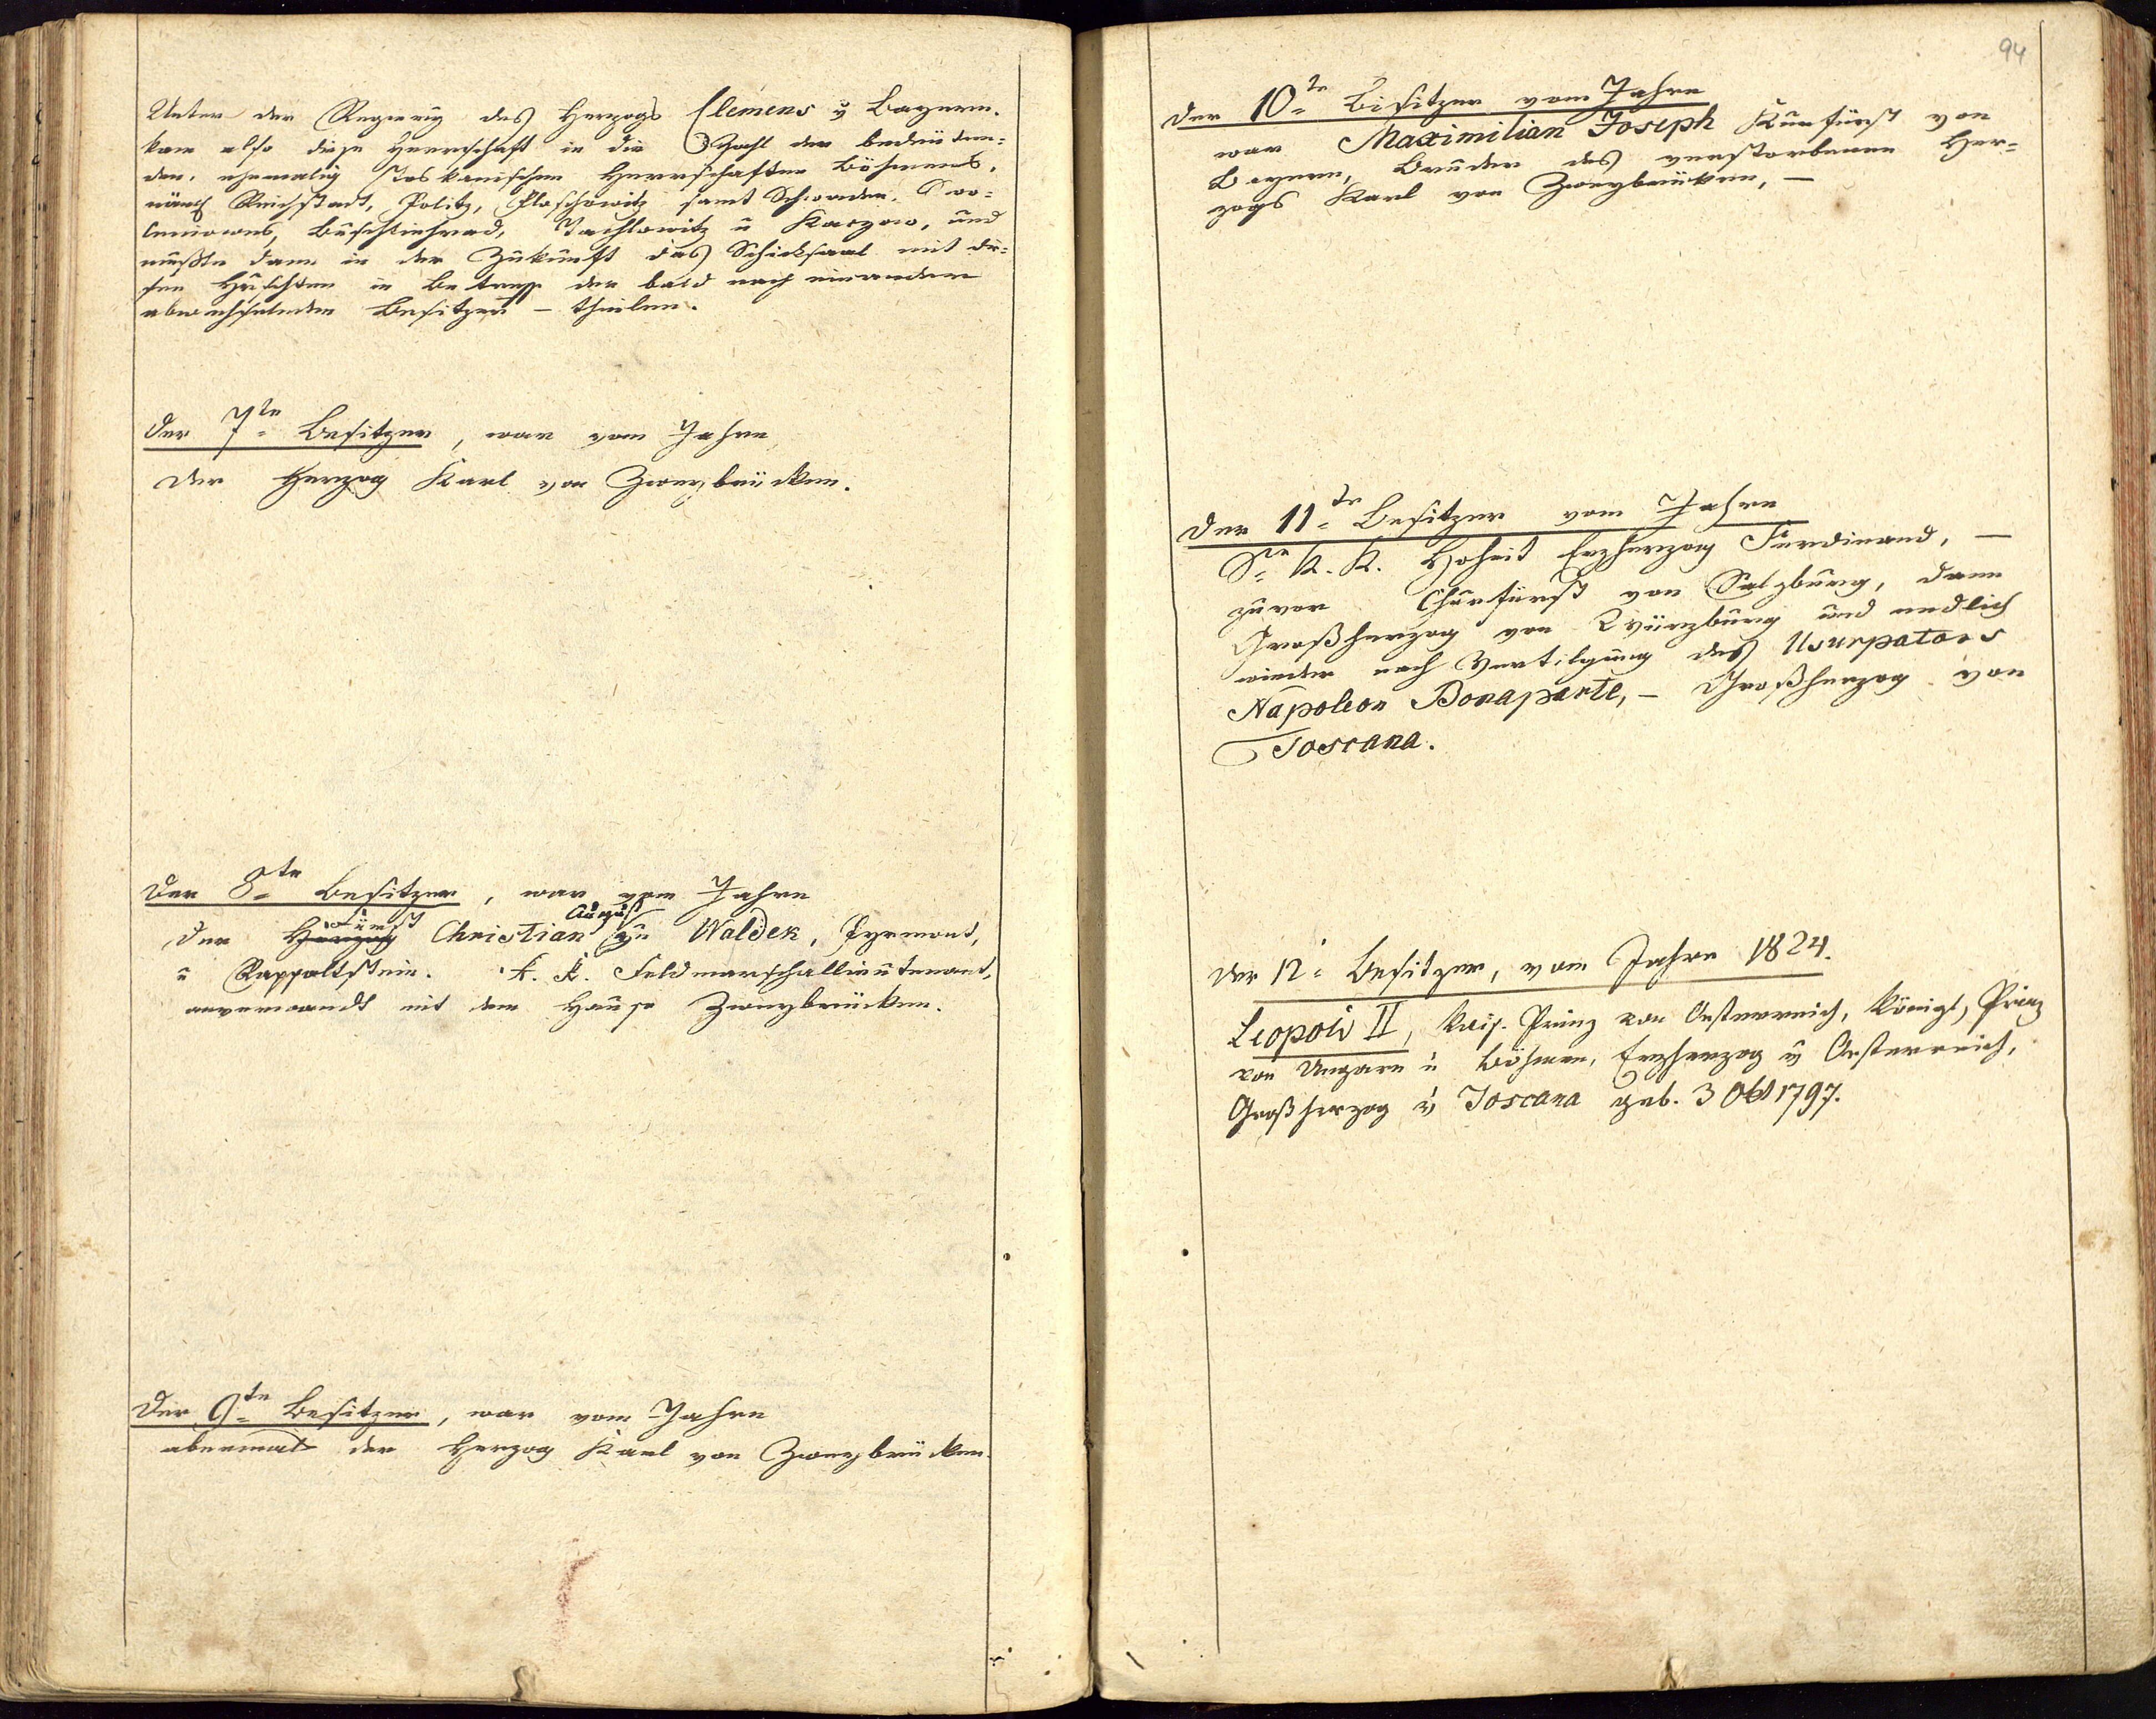 Unter der Regierung des Herzogs Clemens v Bayern.
kam also diese Herrschaft in die Zahl der bedeuten=
den, ehemalig Toskanischen Herrschaften Böhmens,
näml Reichstadt, Politz, Ploschowitz samt Schwaden, Swo=
leniowes, Buschtiehrad, Tachlowitz u Kaczow, und
mußte dann in der Zukunft das Schicksaal mit die=
sen Hschften in Betreff der bald nach einander
abwechselnden Besitzer – theilen.
Der 7te Besitzer, war vom Jahre
der Herzog Karl von Zweybrücken.
Der 8te Besitzer, war vom Jahre
der Herzog Fürst Christian August zu Waldek, Pyrmont,
u Rappoltstein. k. k. Feldmarschallieutenant,
anverwandt mit dem Hause Zweybrücken.
Der 9te Besitzer, war vom Jahre
abermal der Herzog Karl von Zweybrücken.
94
Der 10te Besitzer vom Jahre
war Maximilian Joseph Kurfürst von
Bayern, Bruder des verstorbenen Her=
zogs Karl von Zweybrücken, –
Der 11te Besitzer vom Jahre
Se K. K. Hoheit Erzherzog Ferdinand, –
zuvor Churfürst von Salzburg, dann
Großherzog von Würzburg und endlich
wieder nach Vertilgung des Usurpators
Napoleon Bonaparte, – Großherzog von
Toscana.
Der 12= Besitzer, vom Jahre 1824.
Leopold II, kais. Prinz von Oesterreich, königl, Prinz
von Ungarn u Böhmen, Erzherzog v Oesterreich,
Großherzog v Toscana geb. 3 Okt 1797.